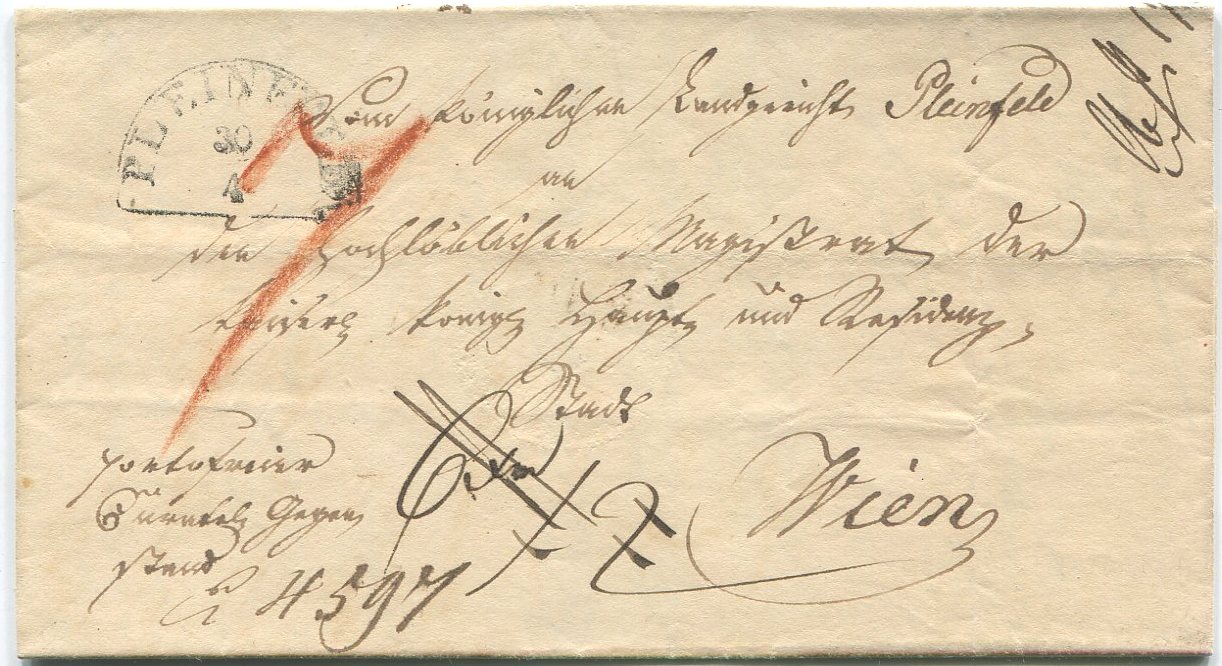 PLEINFELD
30
4
Vom königlichen Landgericht Pleinfeld
an
den hochlöblichen Magistrat der
kaiserl königl Haupt und Residenz-
Stadt
Wien
portofreier
Curatel Gegen
stand
4597